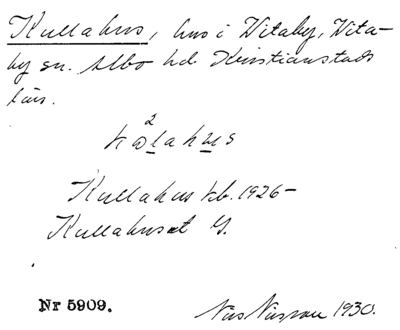 Kullahus, hus i Vitaby, Vita-
by sn. Albo hd. Kristianstads
län.
2
kɷlahus
Kullahus kb. 1926-
Kullahuset G.
Nr 5909.
Nils Nilsson 1930.